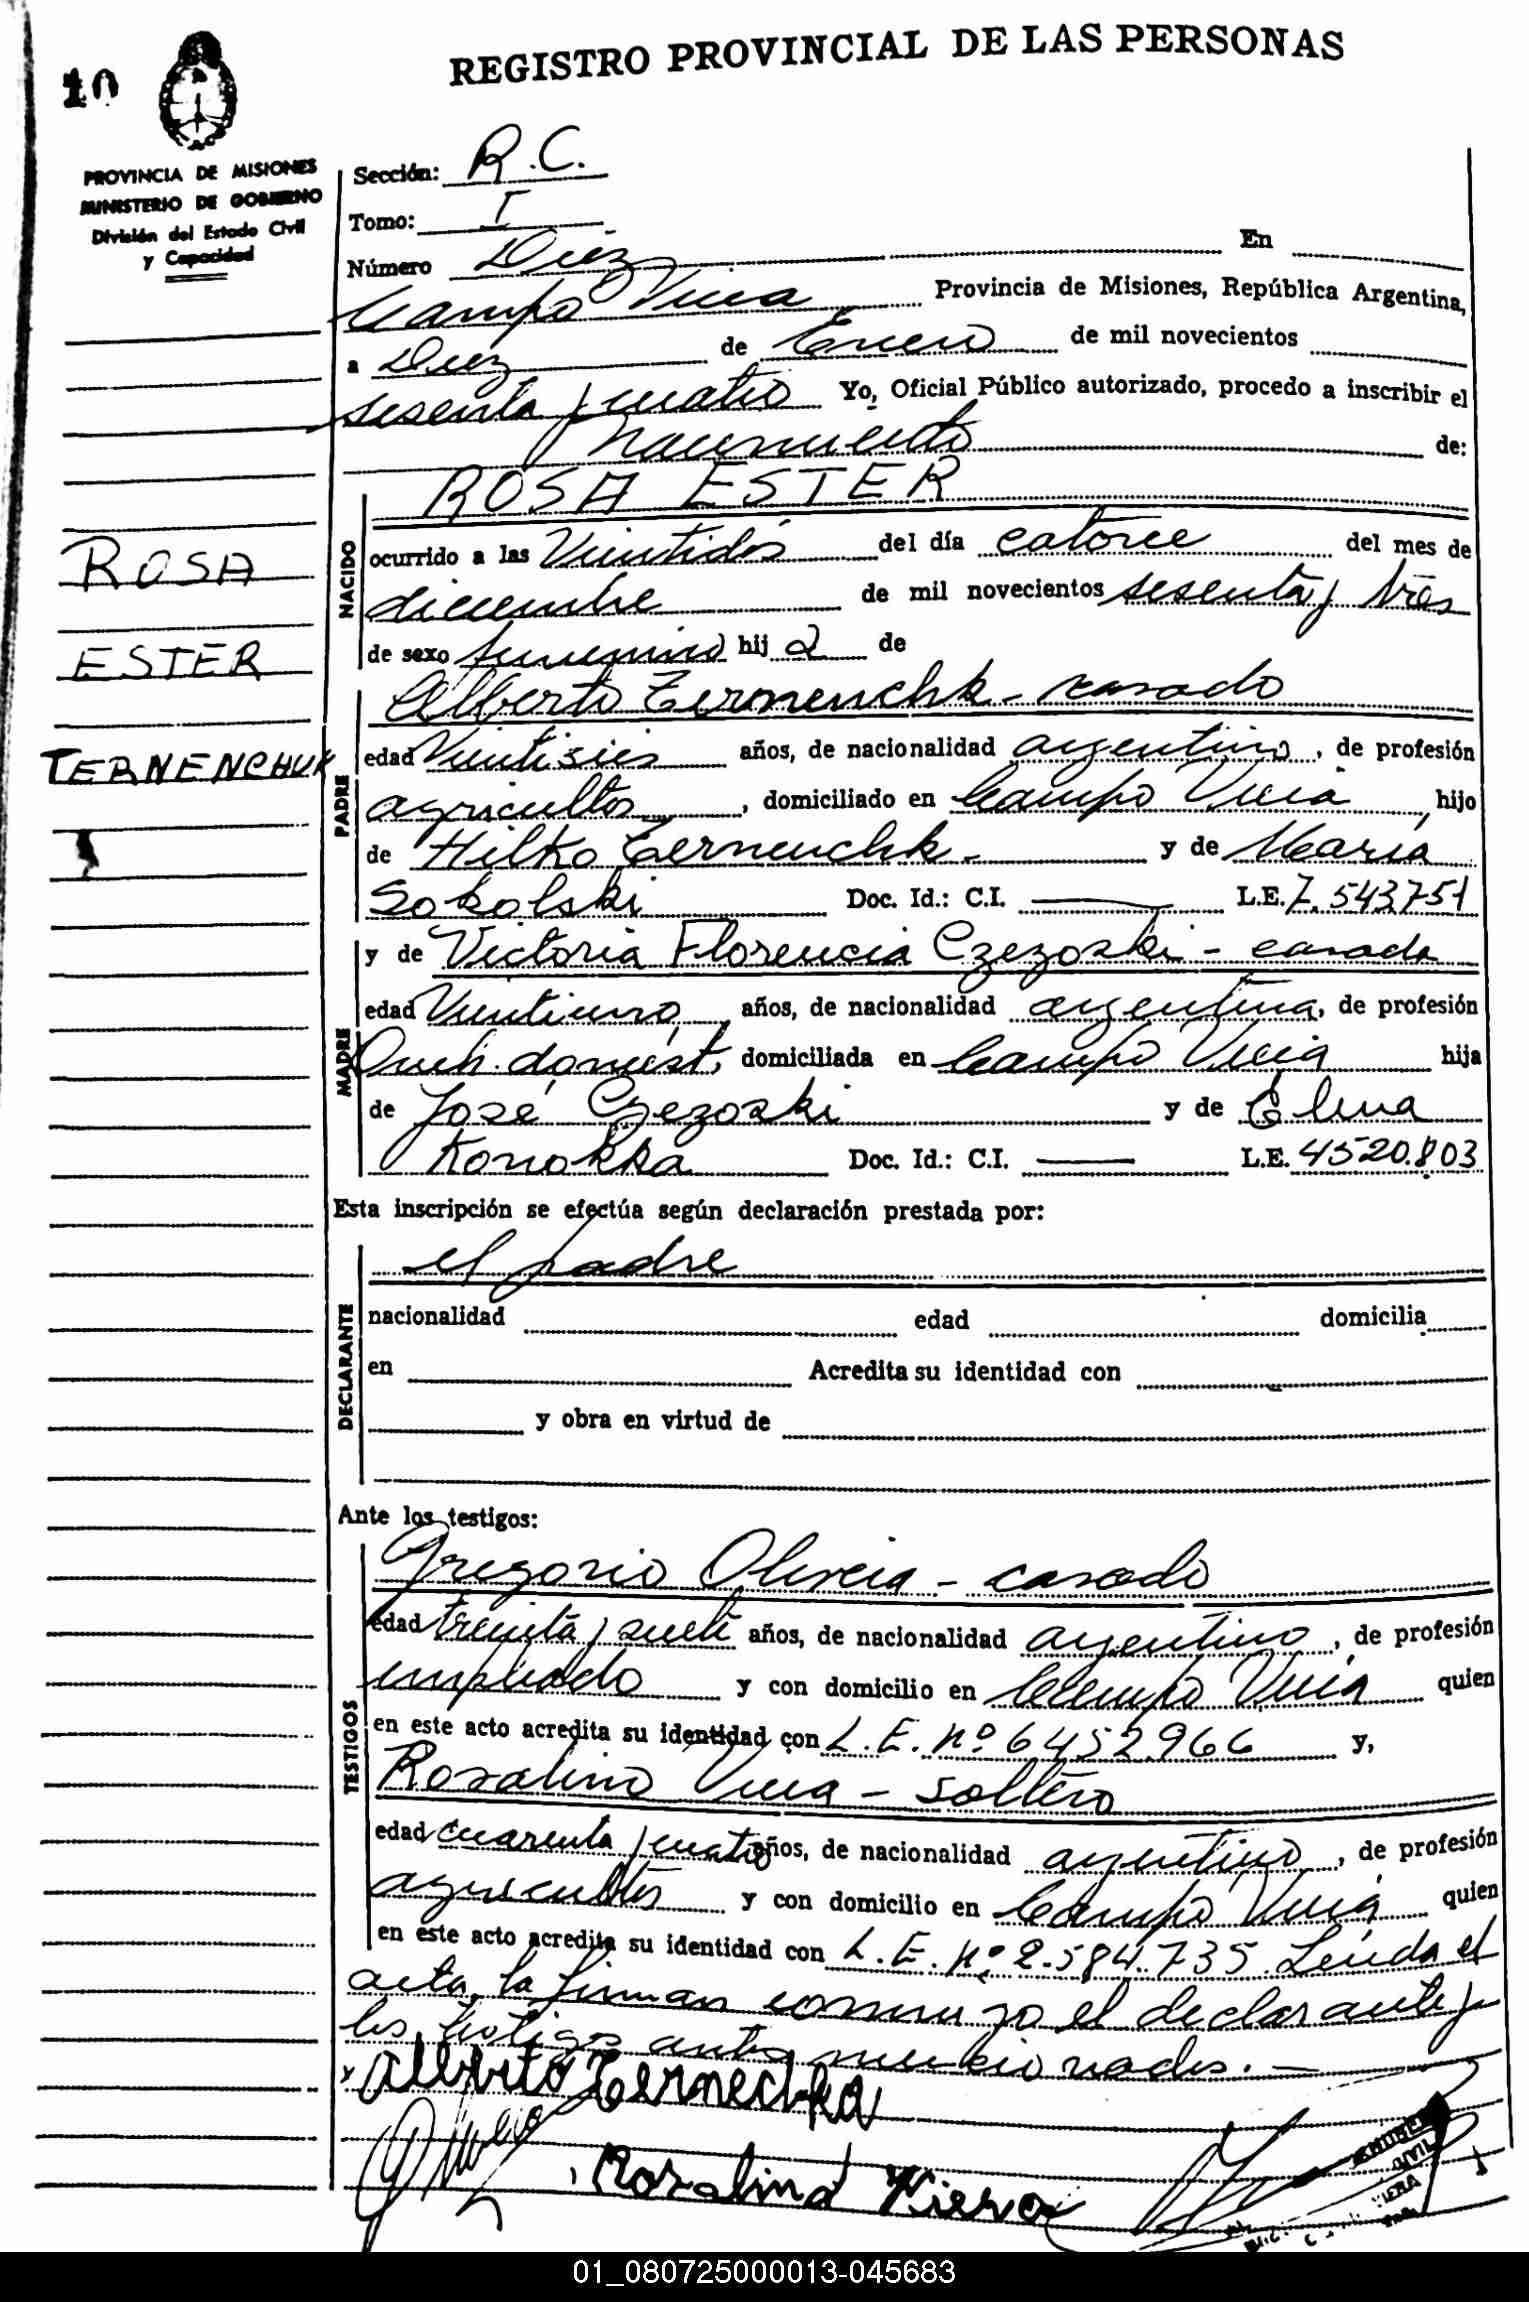 REGISTRO PROVINCIAL DE LAS PERSONAS
10
PROVINCIA DE MISIONES
MINISTERIO DE GOBIERNO
División del Estado Civil
y Capacidad
ROSA
ESTER
TERNENCHUK
Sección: R.C.
Tomo: I
Número Diez En
Campo Viera Provincia de Misiones, República Argentina,
a Diez de Enero de mil novecientos
sesenta y cuatro Yo, Oficial Público autorizado, procedo a inscribir el
nacimiento de:
ROSA ESTER
NACIDO
ocurrido a las Veintidós del día catorce del mes de
diciembre de mil novecientos sesenta y tres
de sexo femenino hij a de
Alberto Ternenchk - casado
PADRE
edad Veintiseis años, de nacionalidad argentino, de profesión
agricultor, domiciliado en Campo Viera hijo
de Hilko Ternenchk - y de María
Sokolski Doc. Id.: C.I. L.E. 7.543.751
y de Victoria Florencia Czezoski - casada
MADRE
edad Veintiuno, años, de nacionalidad argentina, de profesión
Queh. domést, domiciliada en Campo Viera hija
de José Czezoski y de Elena
Konokka Doc. Id.: C.I. L.E. 4520.803
Esta inscripción se efectúa según declaración prestada por:
DECLARANTE
el padre
nacionalidad edad domicilia
en Acredita su identidad con
y obra en virtud de
Ante los testigos:
TESTIGOS
Gregorio Oliveira - casado
edad treinta y siete años, de nacionalidad argentino, de profesión
empleado y con domicilio en Campo Viera quien
en este acto acredita su identidad con L.E. Nº 6452966 y,
Rosalino Viera - soltero
edad cuarenta y cuatro años, de nacionalidad argentino, de profesión
agricultor y con domicilio en Campo Viera quien
en este acto acredita su identidad con L.E. Nº 2.584.735. Leída el
acta, la firman conmigo el declarante y
los testigos antes mencionados. -
Alberto Ternechka
Rosalino Viera
01_080725000013-045683